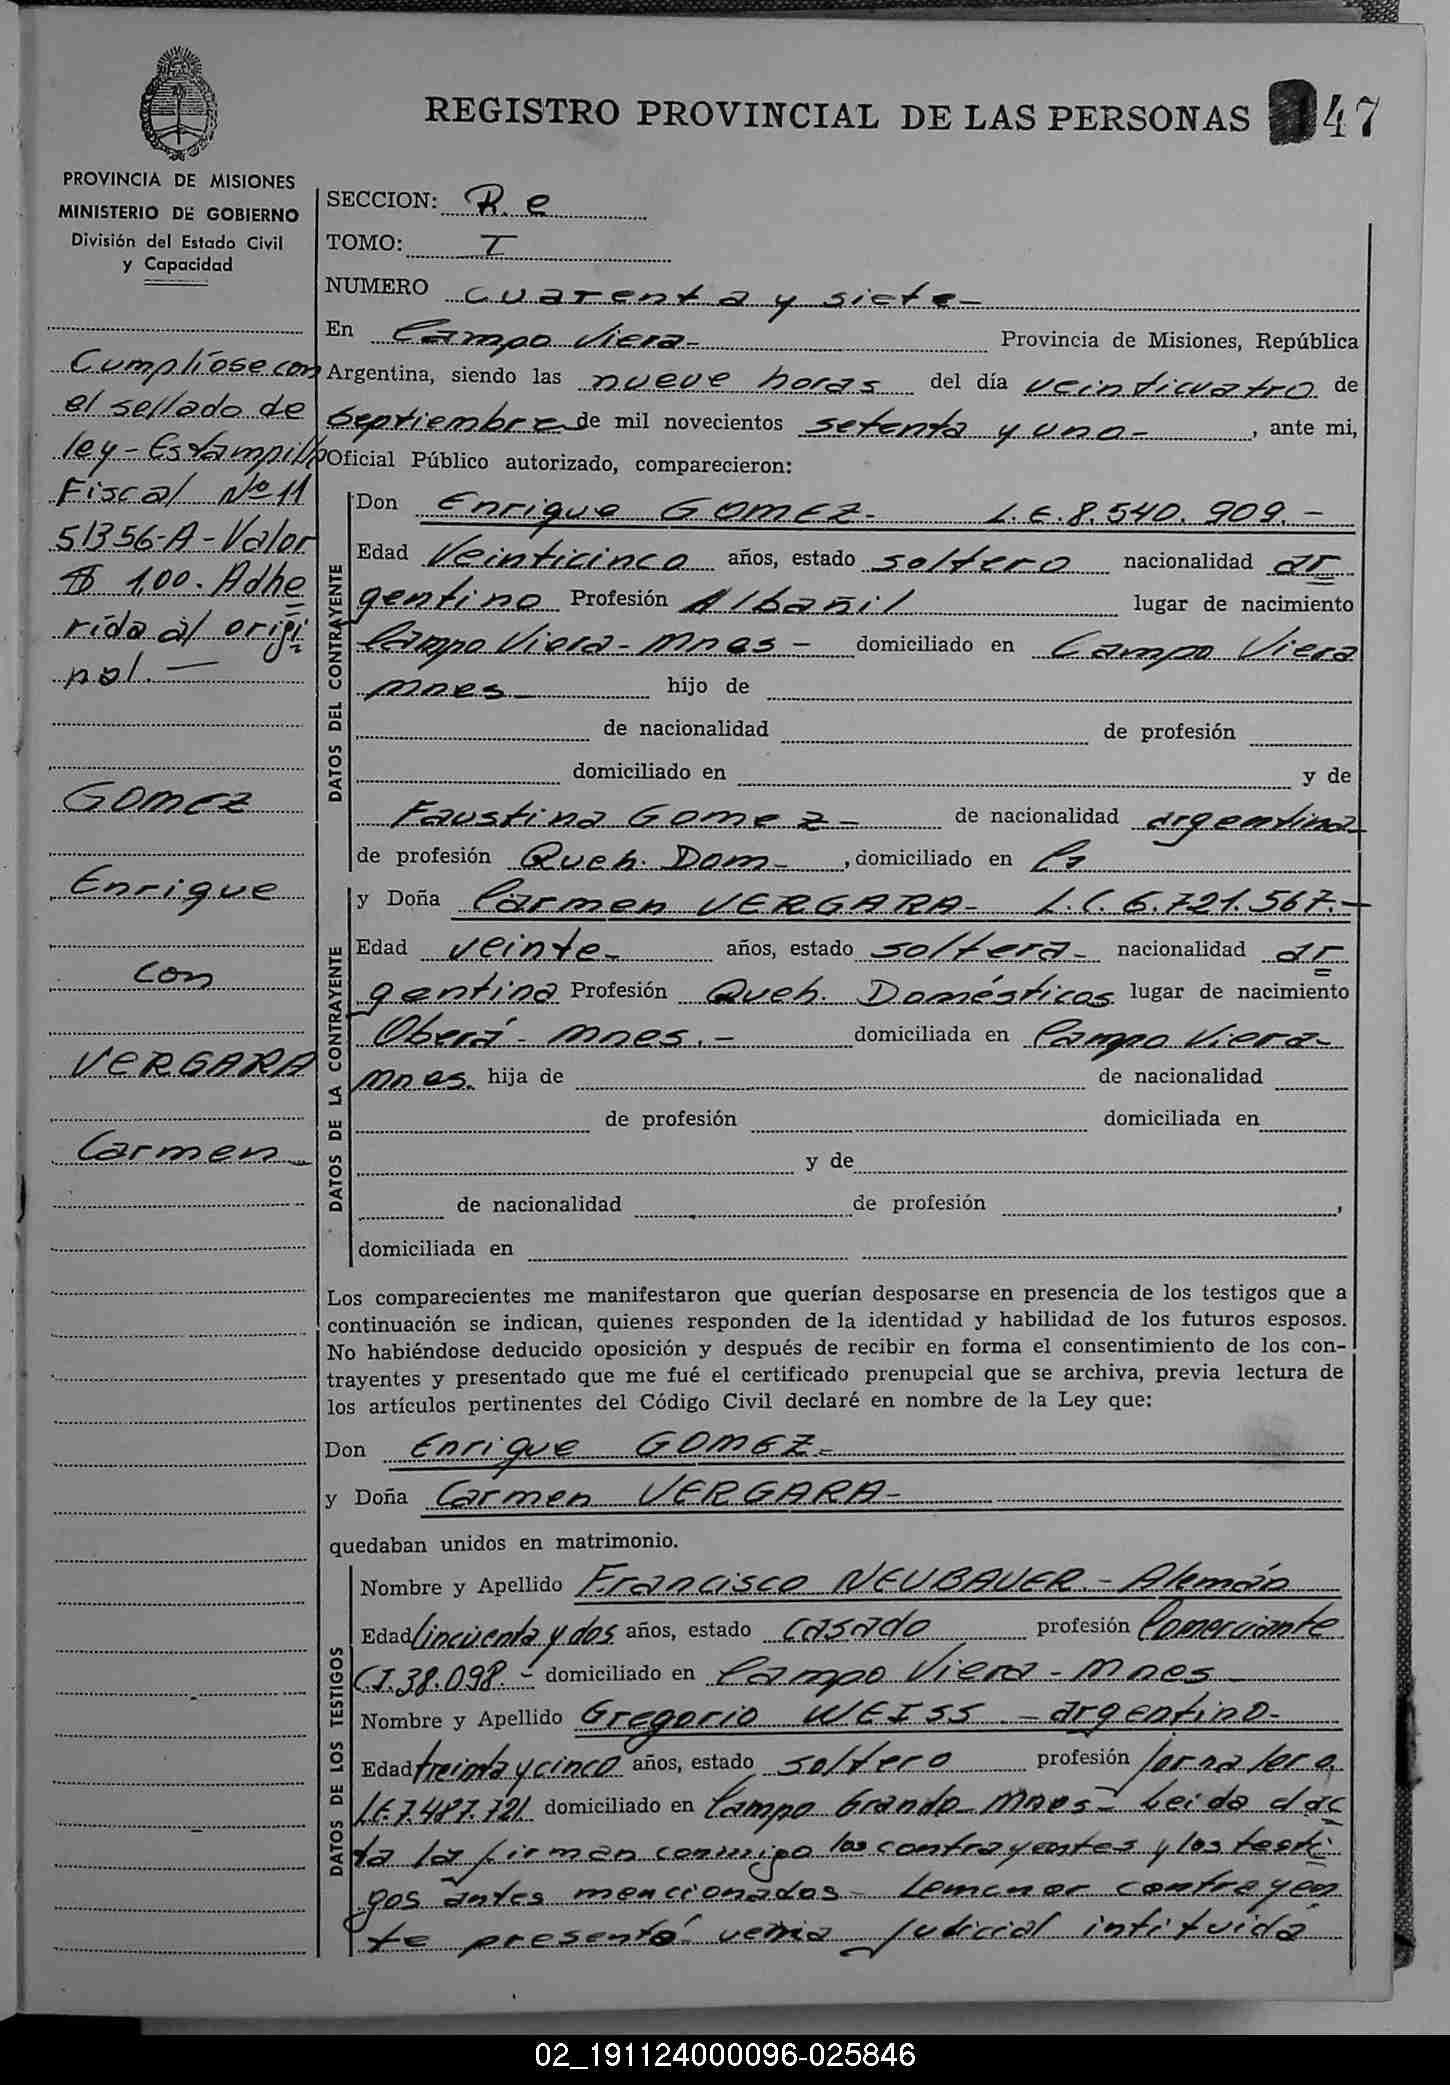 REGISTRO PROVINCIAL DE LAS PERSONAS 147
PROVINCIA DE MISIONES
MINISTERIO DE GOBIERNO
División del Estado Civil
y Capacidad
Cumplíose con
el sellado de
ley - Estampilla
Fiscal Nº 11
51356-A - Valor
$ 1,00. Adhe
rida al origi
nal. —
GOMEZ
Enrique
con
VERGARA
Carmen
SECCION: R. e
TOMO: I
NUMERO cuarenta y siete-
En Campo Viera- Provincia de Misiones, República
Argentina, siendo las nueve horas del día veinticuatro de
Septiembre de mil novecientos setenta y uno-, ante mi,
Oficial Público autorizado, comparecieron:
DATOS DEL CONTRAYENTE
Don Enrique GOMEZ- L.E. 8.540.909.-
Edad Veinticinco años, estado soltero nacionalidad ar
gentino Profesión Albañil lugar de nacimiento
Campo Viera - Mnes - domiciliado en Campo Viera
Mnes- hijo de
de nacionalidad de profesión
domiciliado en y de
Faustina Gomez- de nacionalidad argentina-
de profesión Queh. Dom-, domiciliado en
DATOS DE LA CONTRAYENTE
y Doña Carmen VERGARA- L.C. 6.721.567.-
Edad veinte- años, estado soltera- nacionalidad ar
gentina Profesión Queh. Domésticos lugar de nacimiento
Oberá - Mnes.- domiciliada en Campo Viera-
Mnes. hija de de nacionalidad
de profesión domiciliada en
y de
de nacionalidad de profesión ,
domiciliada en
Los comparecientes me manifestaron que querían desposarse en presencia de los testigos que a
continuación se indican, quienes responden de la identidad y habilidad de los futuros esposos.
No habiéndose deducido oposición y después de recibir en forma el consentimiento de los con-
trayentes y presentado que me fué el certificado prenupcial que se archiva, previa lectura de
los artículos pertinentes del Código Civil declaré en nombre de la Ley que:
Don Enrique GOMEZ-
y Doña Carmen VERGARA-
quedaban unidos en matrimonio.
DATOS DE LOS TESTIGOS
Nombre y Apellido Francisco NEUBAUER.- Alemán
Edad Cincuenta y dos años, estado casado profesión Comerciante
C.I. 38.098.- domiciliado en Campo Viera - Mnes
Nombre y Apellido Gregorio WEISS - argentino-
Edad treinta y cinco años, estado soltero profesión Jornalero.
L.E. 7.487.721. domiciliado en Campo Grande- Mnes- Leida el ac
ta la firman conmigo los contrayentes y los testi
gos antes mencionados- La menor contrayen
te presentó venia judicial intituida
02_191124000096-025846